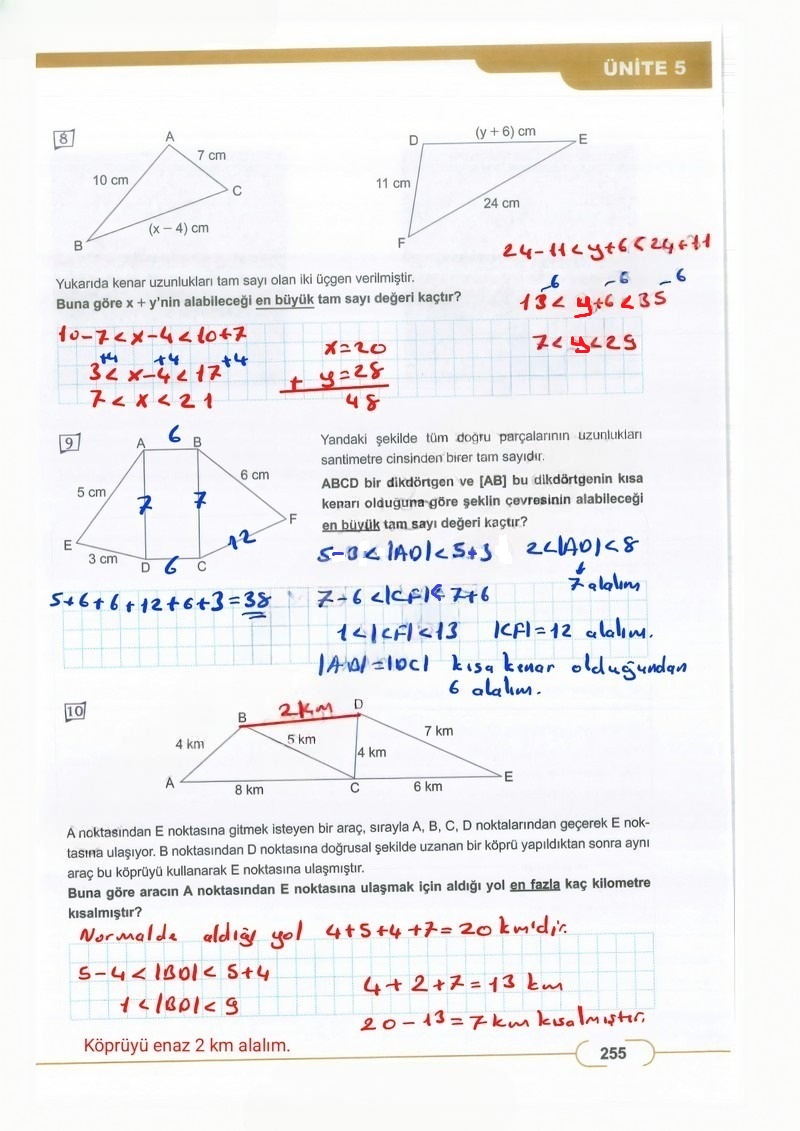 ÜNİTE 5
8
A
7 cm
10 cm
C
(x – 4) cm
B
D
(y + 6) cm
E
11 cm
24 cm
F
24-11<y+6<24+11
-6 -6 -6
13< y+6 <35
7<y<29
Yukarıda kenar uzunlukları tam sayı olan iki üçgen verilmiştir.
Buna göre x + y'nin alabileceği en büyük tam sayı değeri kaçtır?
10-7<x-4<10+7
+4 +4 +4
3< x-4<17
7< x < 21
x=20
+ y=28
48
9
6
A B
5 cm
6 cm
7 7
E
F
3 cm
D 6 C
12
5+6+6+12+6+3=38
Yandaki şekilde tüm doğru parçalarının uzunlukları
santimetre cinsinden birer tam sayıdır.
ABCD bir dikdörtgen ve [AB] bu dikdörtgenin kısa
kenarı olduğuna göre şeklin çevresinin alabileceği
en büyük tam sayı değeri kaçtır?
5-3<|AD|<5+3 2<|AD|<8
7 alalım
7-6<|CF|<7+6
1<|CF|<13 |CF|=12 alalım.
|AB|=|DC| kısa kenar olduğundan
6 alalım.
10
2 km
B D
4 km
5 km
7 km
4 km
A
8 km
C
6 km
E
A noktasından E noktasına gitmek isteyen bir araç, sırayla A, B, C, D noktalarından geçerek E nok-
tasına ulaşıyor. B noktasından D noktasına doğrusal şekilde uzanan bir köprü yapıldıktan sonra aynı
araç bu köprüyü kullanarak E noktasına ulaşmıştır.
Buna göre aracın A noktasından E noktasına ulaşmak için aldığı yol en fazla kaç kilometre
kısalmıştır?
Normalde aldığı yol 4+5+4+7=20 km'dir.
5-4<|BD|<5+4
1<|BD|<9
4+2+7=13 km
20-13=7 km kısalmıştır.
Köprüyü enaz 2 km alalım.
255